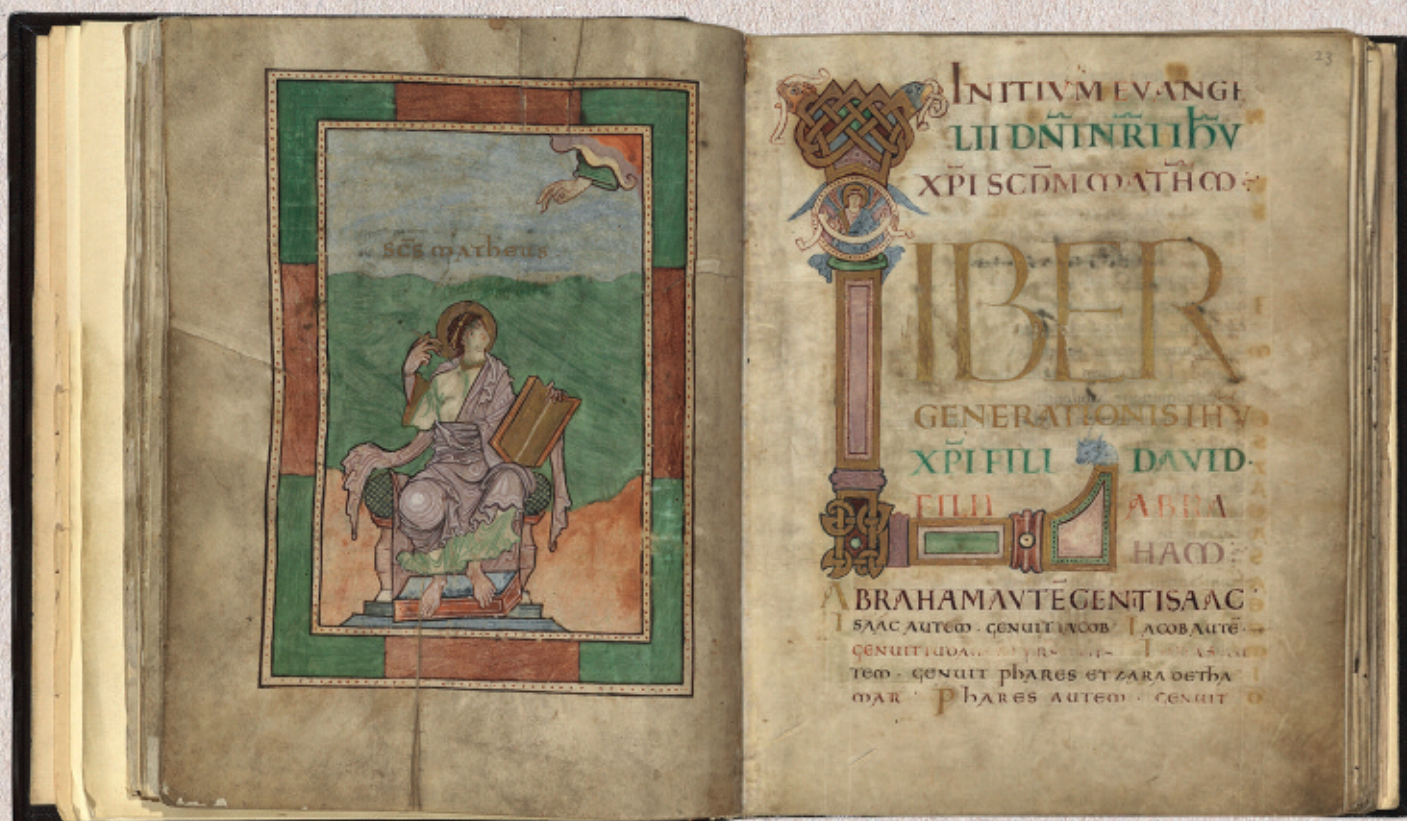 SCS matheus
23
INITIVM EVANGE
LII DNI NRI IHV
XPI SCDM MATHM
LIBER
GENERATIONIS IHV
XPI FILI DAVID
FILII ABRA
HAM
ABRAHAM AVTE GENT ISAAC
ISAAC AUTEM · GENUIT IACOB IACOB AUTE
GENUIT IUDA
TEM · GENUIT PHARES ET ZARA DE THA
MAR PHARES AUTEM · GENUIT